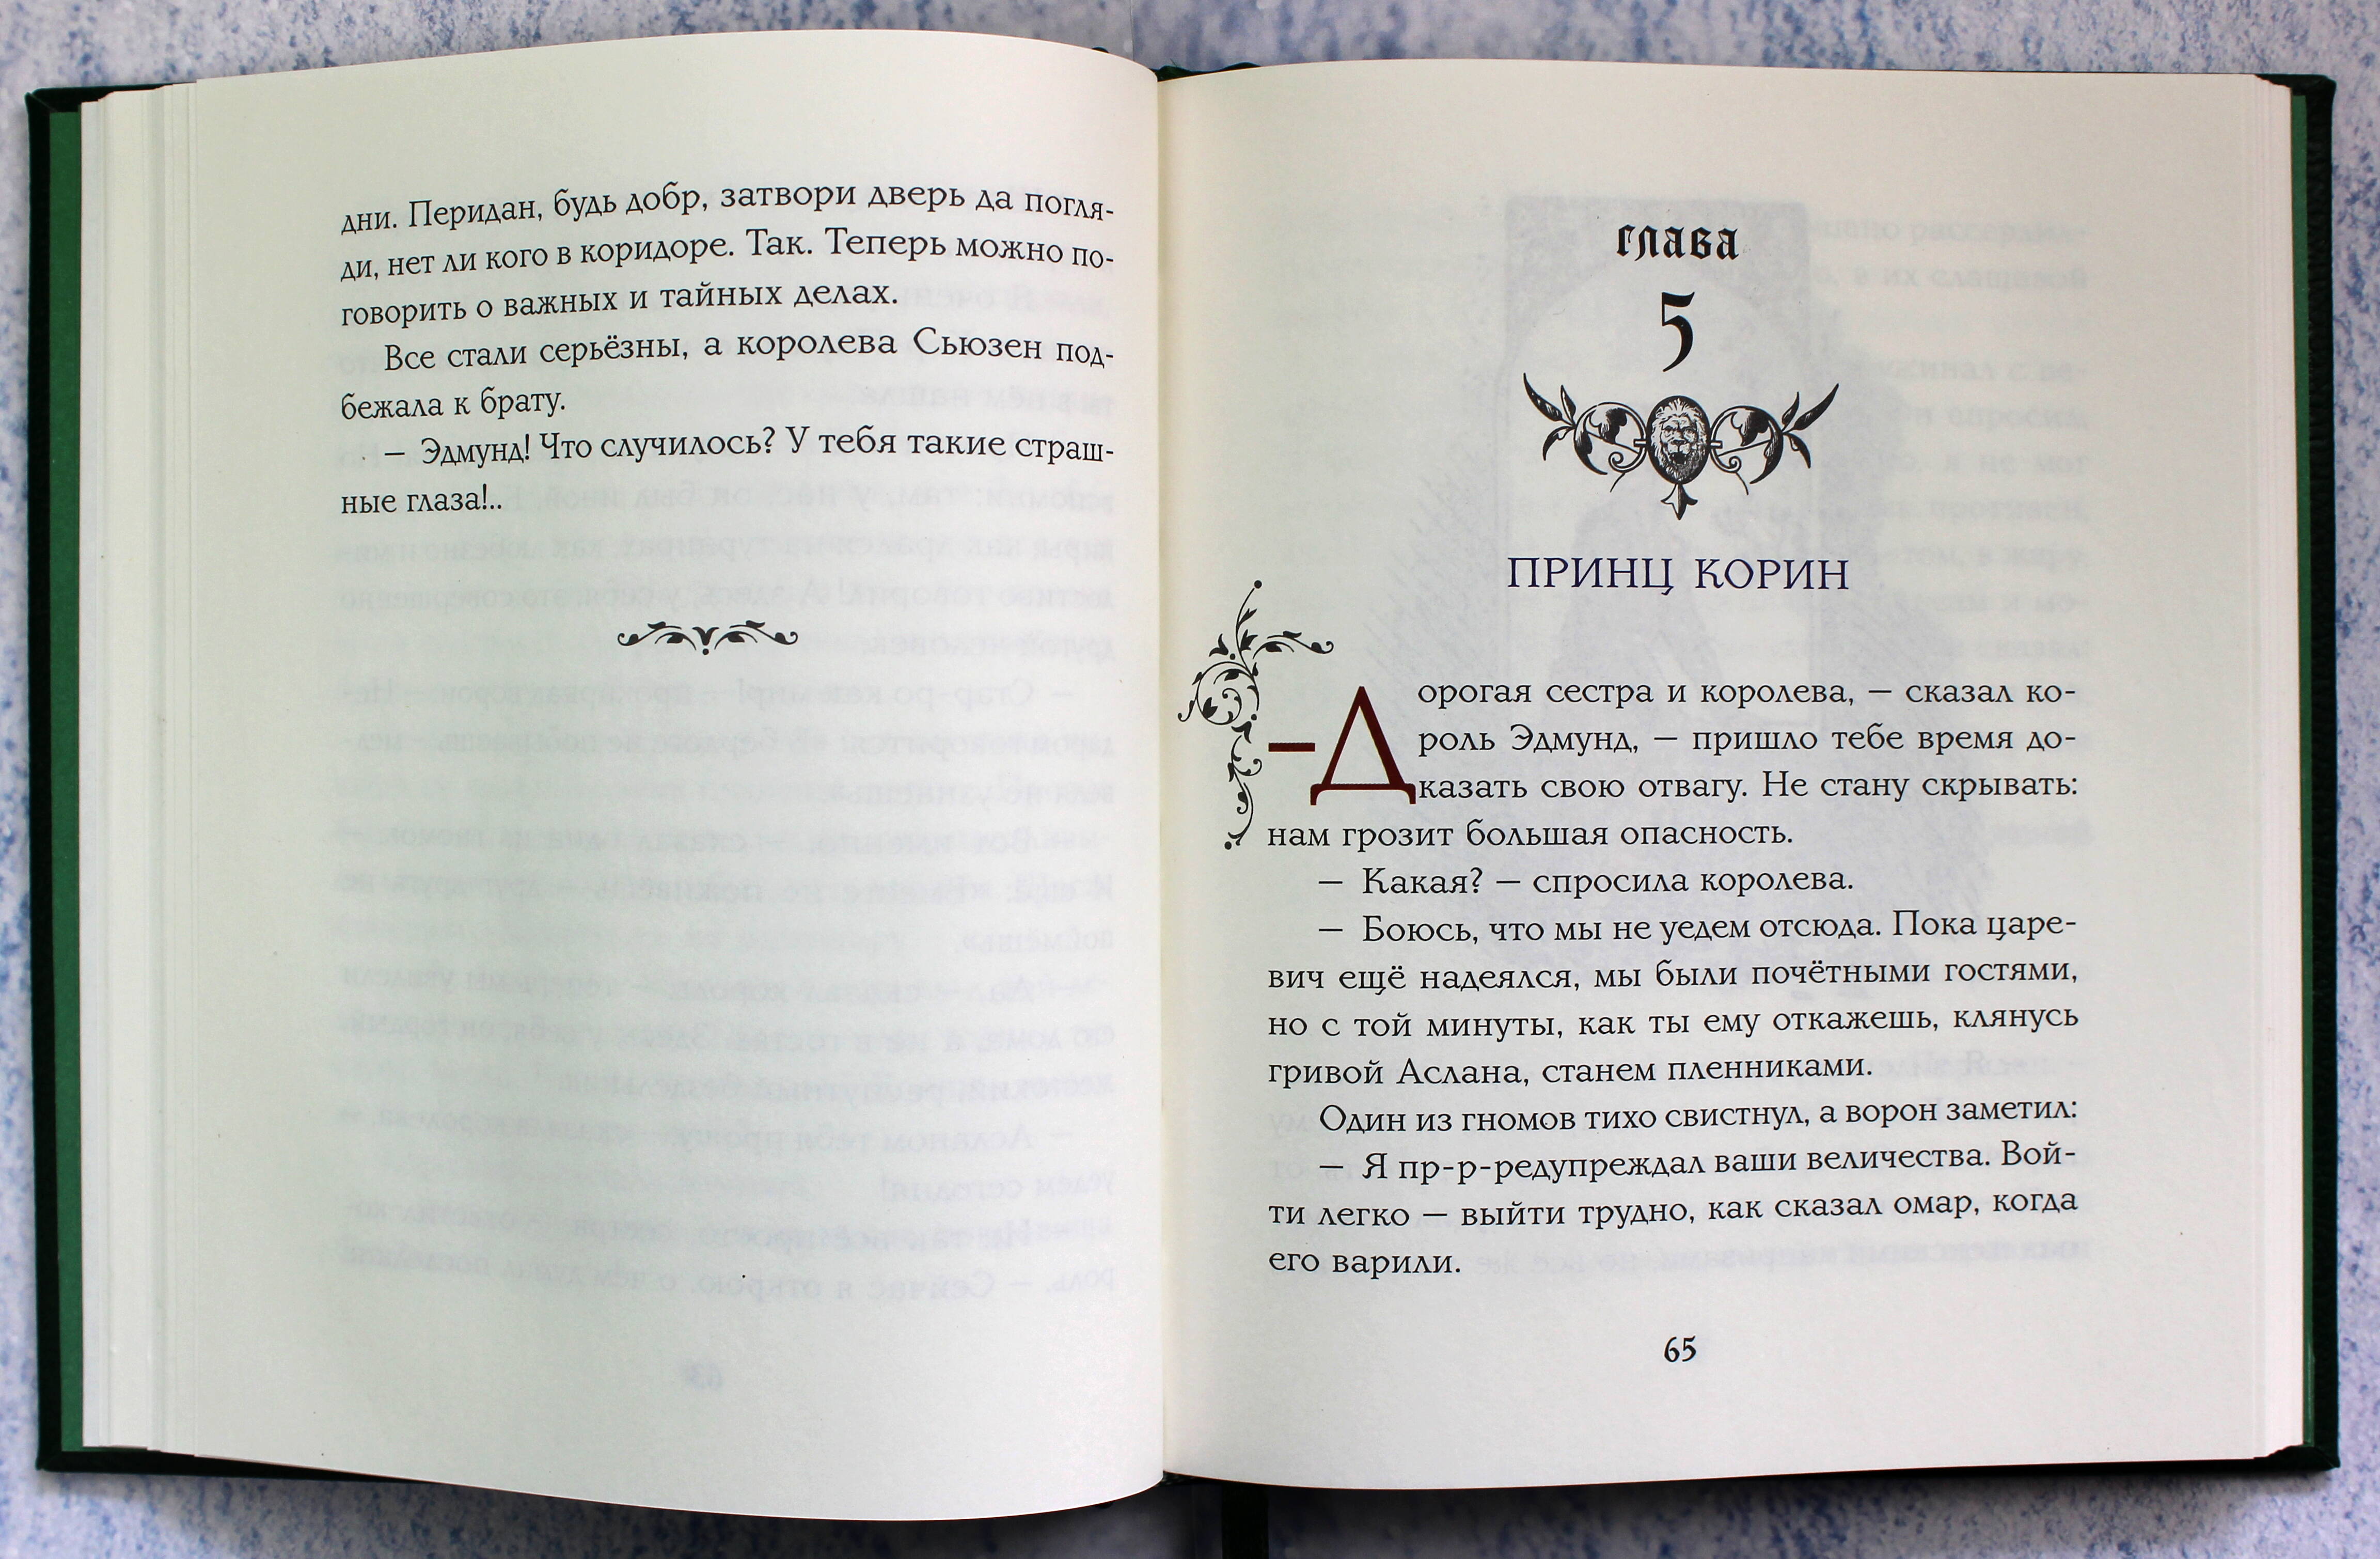 дни. Перидан, будь добр, затвори дверь да погля-
ди, нет ли кого в коридоре. Так. Теперь можно по-
говорить о важных и тайных делах.
Все стали серьёзны, а королева Сьюзен под-
бежала к брату.
— Эдмунд! Что случилось? У тебя такие страш-
ные глаза!..
глава
5
ПРИНЦ КОРИН
—Дорогая сестра и королева, — сказал ко-
роль Эдмунд, — пришло тебе время до-
казать свою отвагу. Не стану скрывать:
нам грозит большая опасность.
— Какая? — спросила королева.
— Боюсь, что мы не уедем отсюда. Пока царе-
вич ещё надеялся, мы были почётными гостями,
но с той минуты, как ты ему откажешь, клянусь
гривой Аслана, станем пленниками.
Один из гномов тихо свистнул, а ворон заметил:
— Я пр-р-редупреждал ваши величества. Вой-
ти легко — выйти трудно, как сказал омар, когда
его варили.
65